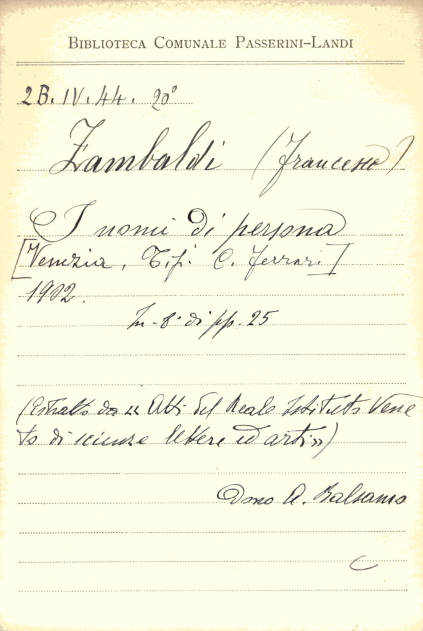 BIBLIOTECA COMUNALE PASSERINI-LANDI
2B.IV.44. 20°
Zambaldi (Francesco)
I nomi di persona
[Venezia, Tip. C. Ferrari]
1902.
In-8° di pp. 25
(Estratto da « Atti del Reale Istituto Vene
to di scienze lettere ed arti »)
Dono A. Balsamo
C